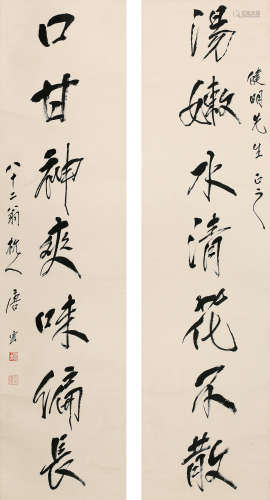 湯嫩水清花不散
健明先生正之
口甘神爽味偏長
八十二翁 唐雲